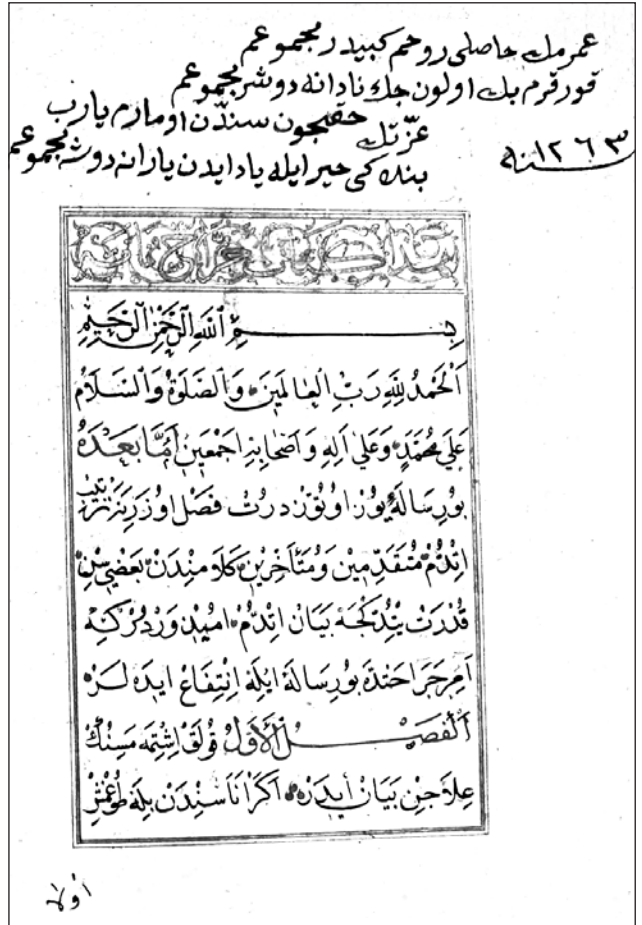 عمرمك حاصلى روحم كبيدر مجموعم
قورقرم بك اولون جك نادانه دوشر مجموعم
عزّتك حقيچون سندن اومارم يارب
بنده كمى خير ايله ياد ايدن يارانه دوشه مجموعم
سنه ١٢٦٣
بِسْمِ اللّٰهِ الرَّحْمٰنِ الرَّحِيمِ
اَلْحَمْدُ لِلّٰهِ رَبِّ الْعَالَمِينَ وَالصَّلَوةُ وَالسَّلَامُ
عَلَى مُحَمَّدٍ وَعَلَى اٰلِهِ وَاَصْحَابِهِ اَجْمَعِينَ اَمَّا بَعْدَهُ
بُورِسَالَهُ يُوزْ اوُتُوزْ دَرْتْ فَصْل اُوزَرِينَه تَرْتِيبْ
اِتْدُمْ مُتَقَدِّمِينْ وَمُتَأَخِّرِينْ كَلَامِنْدَنْ بَعْضِي سِنْ
قُدْرَتْ يِتْدُكْجَهْ بَيَانْ اِتْدُمْ اُمِيدْ وَرْدُرْ كِهْ
اَمْرِ جَرَاحَتْدَه بُورِسَالَهْ اِيلَهْ اِنْتِفَاعْ اِيدَه لَرْ
اَلْفَصْلُ الْاَوَّلُ قُولَقْ اِشِتْمَه مَسِنْكْ
عِلَاجِنْ بَيَانْ اَيدَرْ اَكَرْ اَنَاسِنْدَنْ بِلَهْ طُوغْمِشْ
اولا